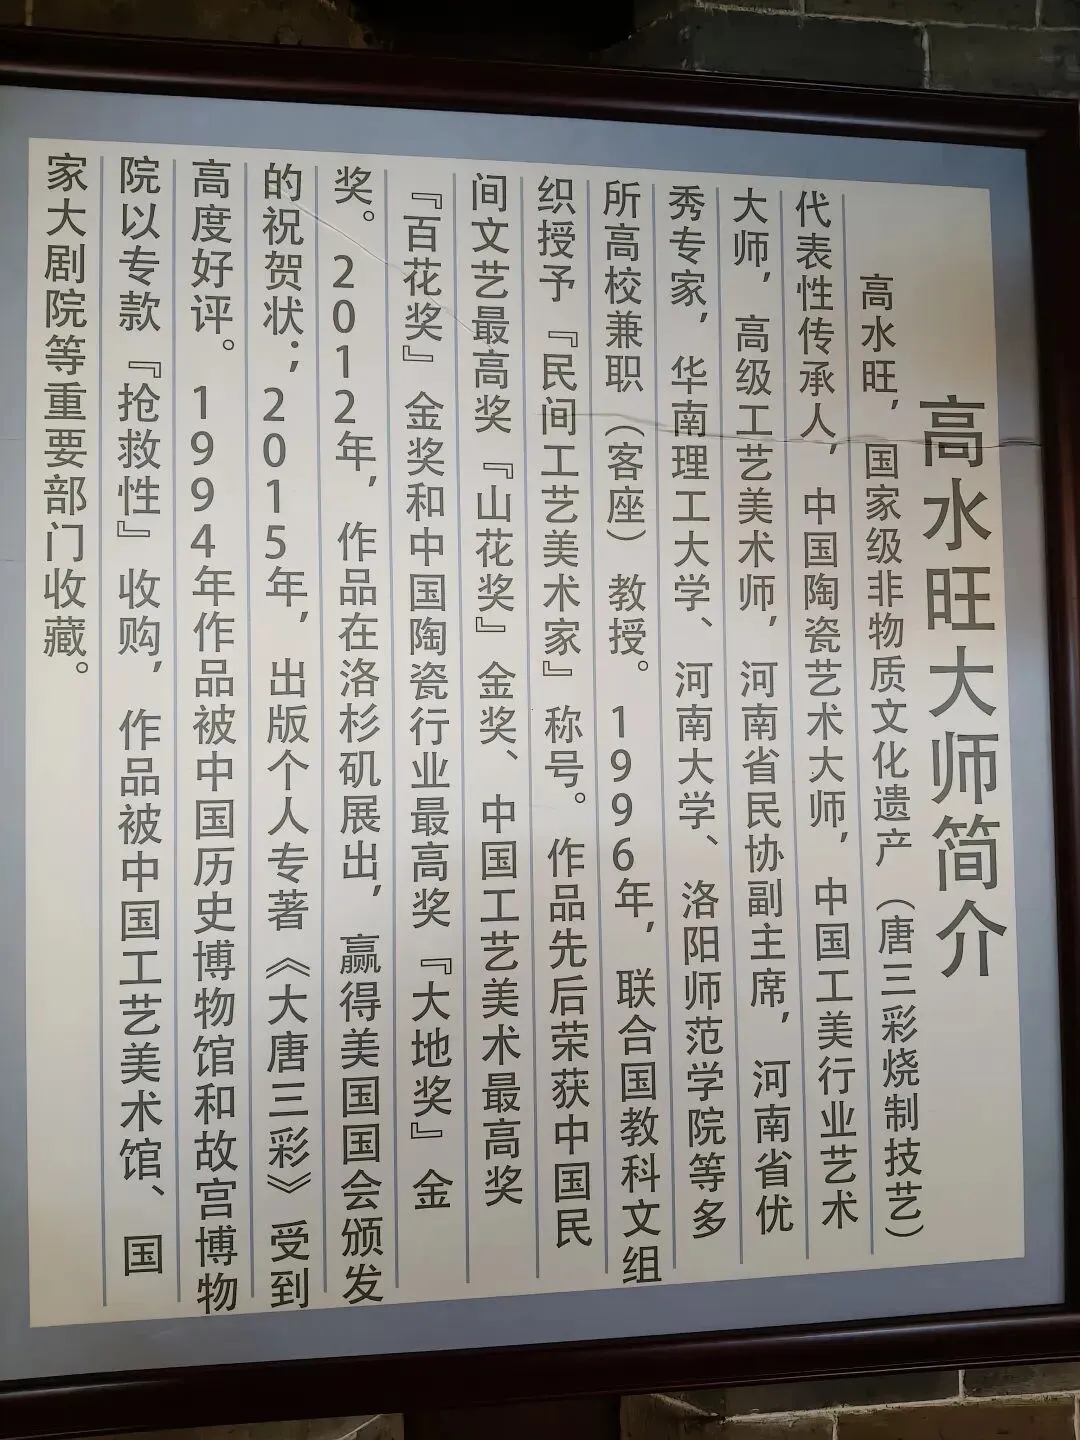 高水旺大师简介
高水旺，国家级非物质文化遗产（唐三彩烧制技艺）
代表性传承人，中国陶瓷艺术大师，中国工美行业艺术
大师，高级工艺美术师，河南省民协副主席，河南省优
秀专家，华南理工大学、河南大学、洛阳师范学院等多
所高校兼职（客座）教授。1996年，联合国教科文组
织授予『民间工艺美术家』称号。作品先后荣获中国民
间文艺最高奖『山花奖』金奖、中国工艺美术最高奖
『百花奖』金奖和中国陶瓷行业最高奖『大地奖』金
奖。2012年，作品在洛杉矶展出，赢得美国国会颁发
的祝贺状；2015年，出版个人专著《大唐三彩》受到
高度好评。1994年作品被中国历史博物馆和故宫博物
院以专款『抢救性』收购，作品被中国工艺美术馆、国
家大剧院等重要部门收藏。